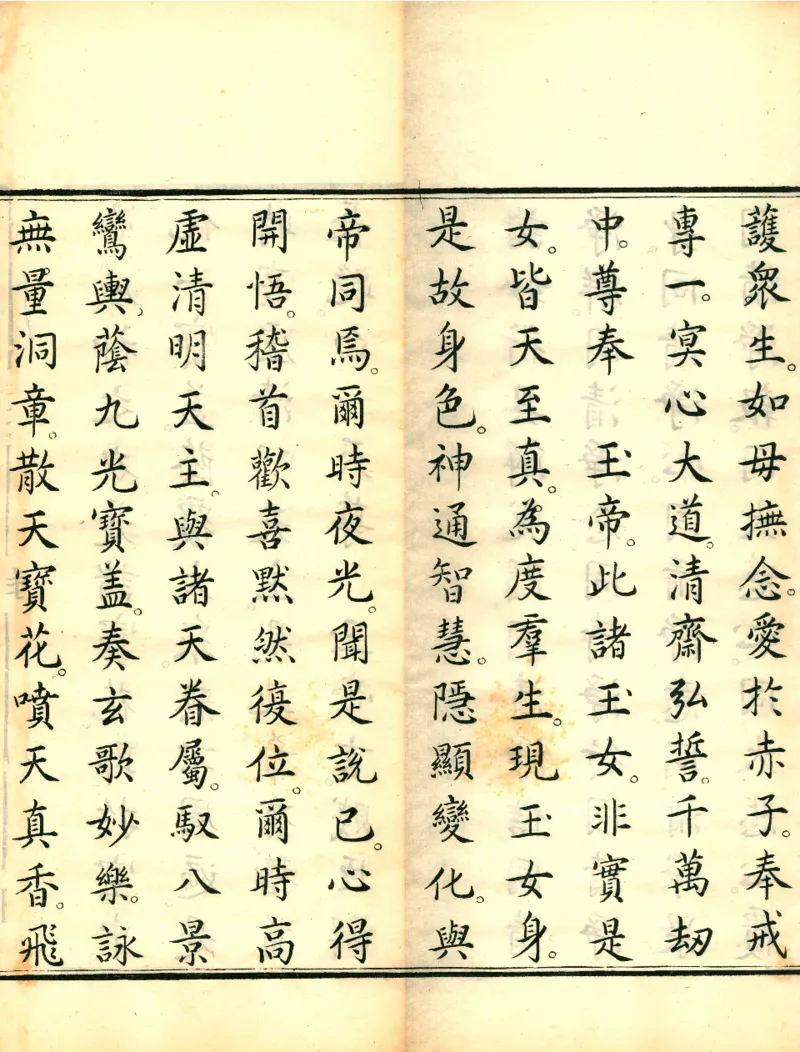 護衆生。如母撫念。愛於赤子。奉戒
專一。㝠心大道。清齋弘誓。千萬劫
中。尊奉　玉帝。此諸玉女。非實是
女。皆天至真。為度羣生。現玉女身。
是故身色。神通智慧。隠顯變化。與
帝同焉。爾時夜光。聞是說已。心得
開悟。稽首歡喜。默然復位。爾時高
虛清明天主。與諸天眷屬。馭八景
鸞輿。蔭九光寶盖。奏玄歌妙樂。詠
無量洞章。散天寶花。噴天真香。飛